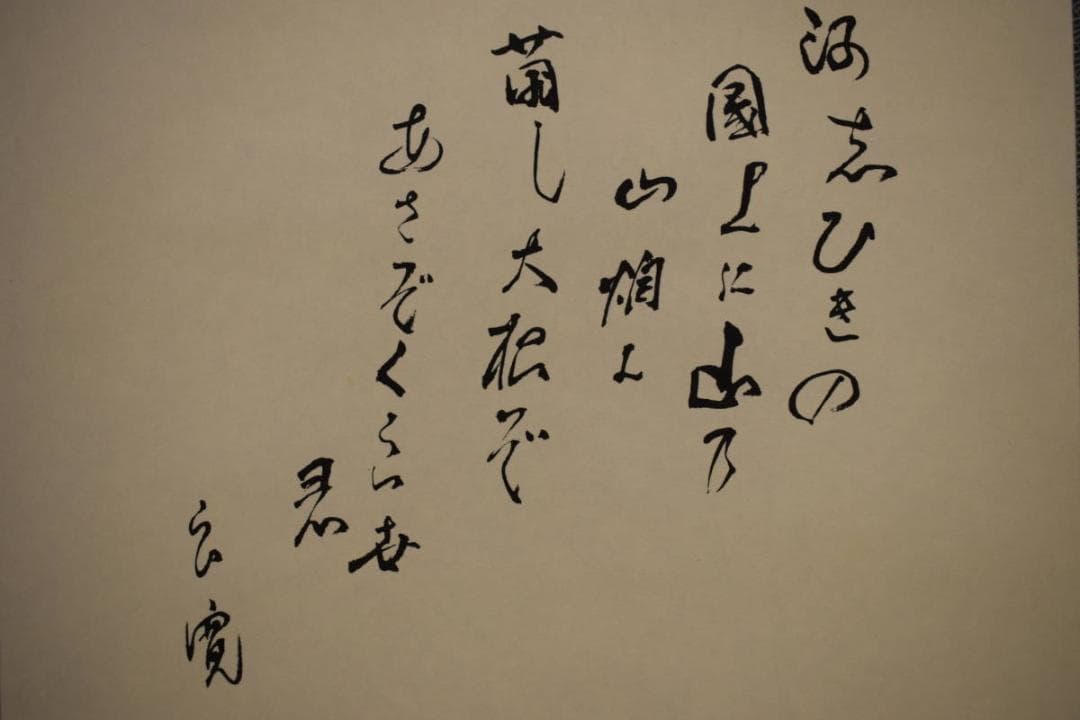 阿志ひきの
國上に山乃
山畑に
蒔し大根ぞ
あさぞくらい世
君
良寛